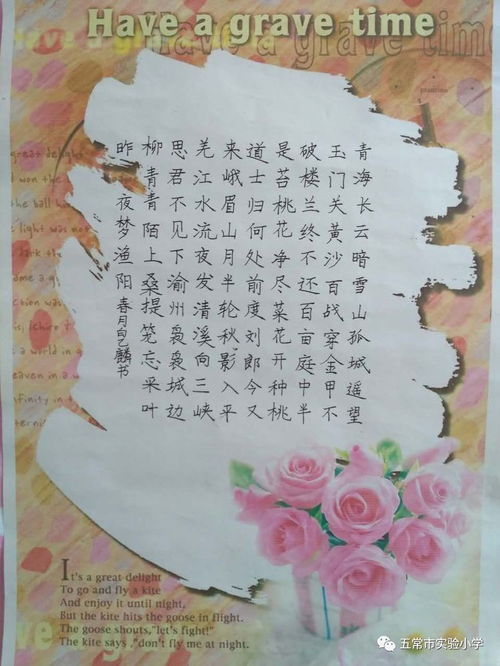 Have a grave time
青海长云暗雪山孤城遥望
玉门关黄沙百战穿金甲不
破楼兰终不还百亩庭中半
是苔桃花净尽菜花开种桃
道士归何处前度刘郎今又
来峨眉山月半轮秋影入平
羌江水流夜发清溪向三峡
思君不见下渝州袅袅城边
柳青青陌上桑提笼忘采叶
昨夜梦渔阳 春月 麟书
It's a great delight
To go and fly a kite
And enjoy it until night,
But the kite hits the goose in flight.
The goose shouts,"let's fight!"
The kite says ,"don't fly me at night.
五常市实验小学